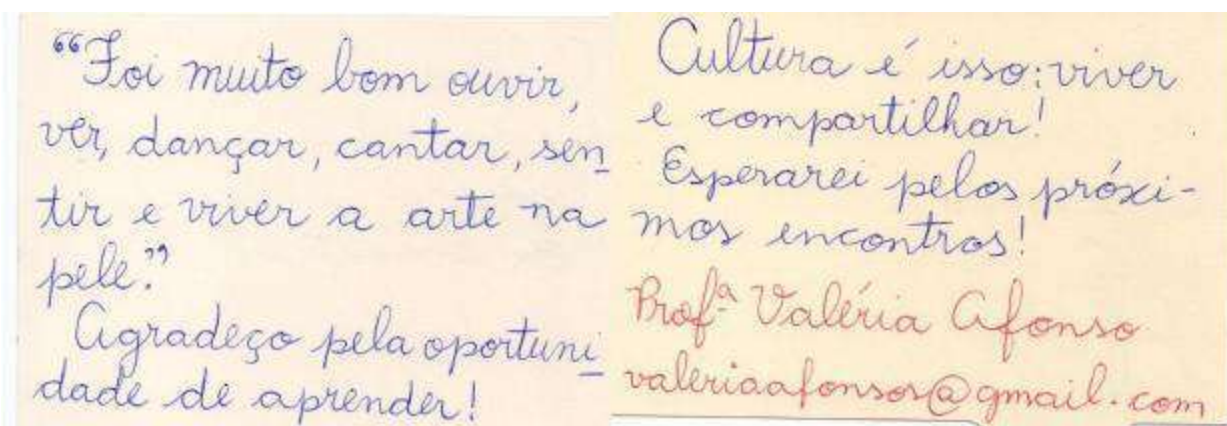 “Foi muito bom ouvir,
ver, dançar, cantar, sen
tir e viver a arte na
pele.”
Agradeço pela oportuni
dade de aprender!
Cultura é isso: viver
e compartilhar!
Esperarei pelos próxi-
mos encontros!
Profª Valéria Afonso
valeriaafonsos@gmail.com